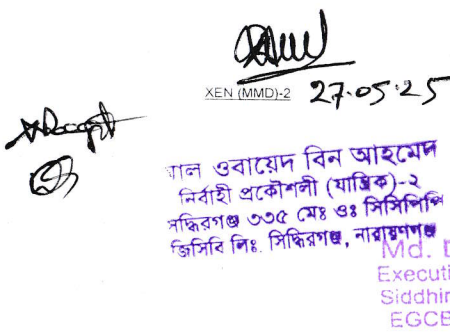 XEN (MMD)-2 27.05.25
াল ওবায়েদ বিন আহমেদ
নির্বাহী প্রকৌশলী (যান্ত্রিক)-২
সিদ্ধিরগঞ্জ ৩৩৫ মেঃ ওঃ সিসিপিপি
জিসিবি লিঃ. সিদ্ধিরগঞ্জ, নারায়ণগঞ্জ
Md.
Executi
Siddhir
EGCB